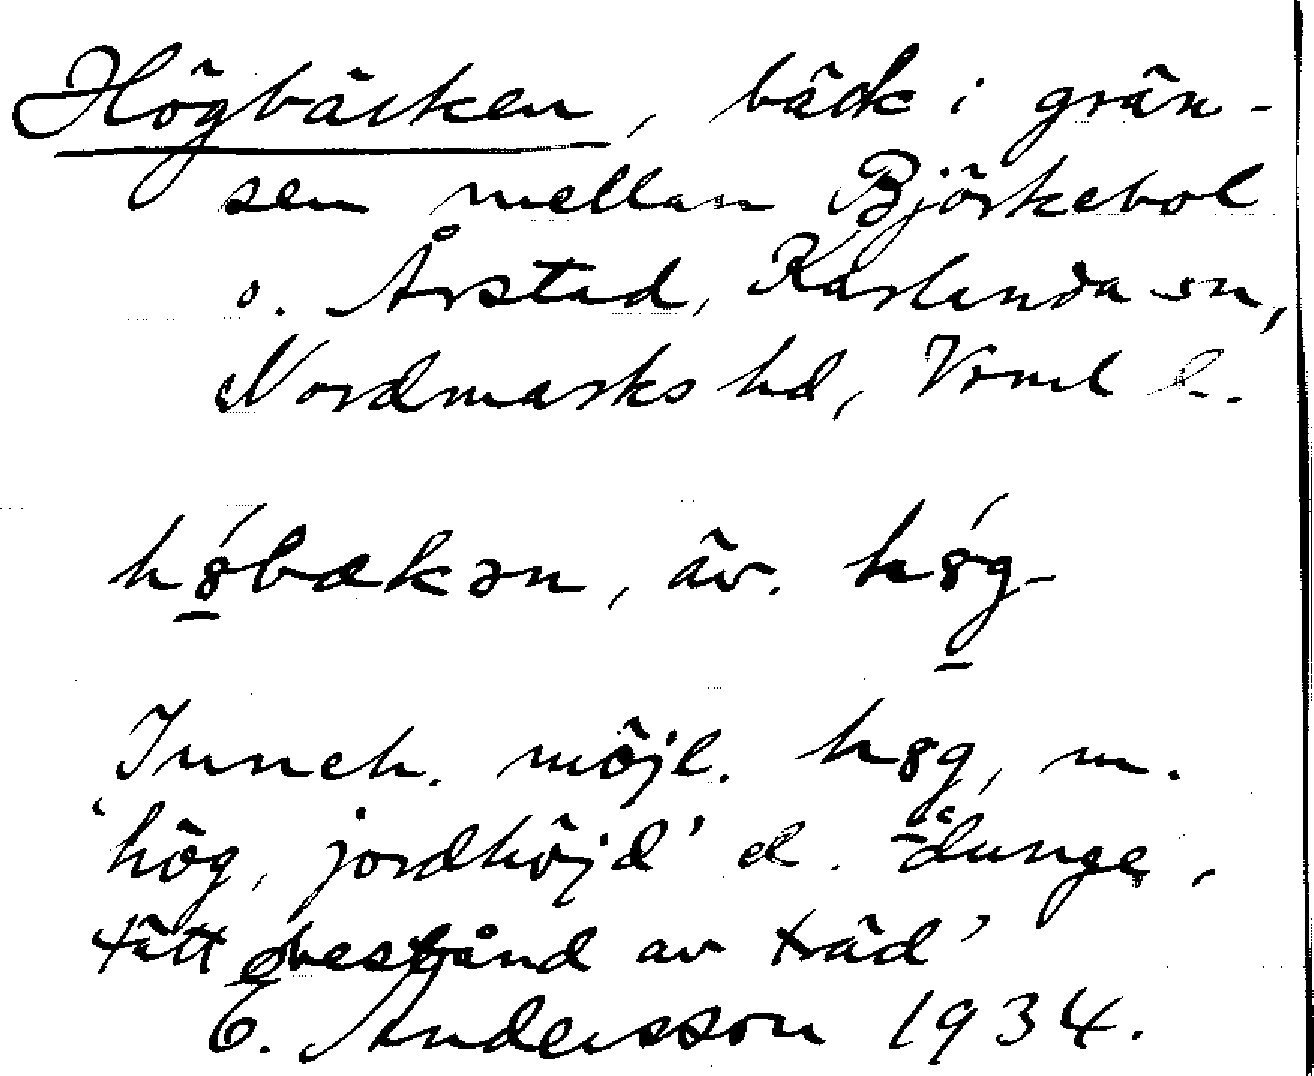 Högbäcken, bäck i grän-
sen mellan Björkebol
o. Årstad, Karlanda sn,
Nordmarks hd, Vrml l.
hǿbækən, äv. hǿg-
Inneh. möjl. høg, m.
'hög, jordhöjd' el. 'dunge,
tätt bestånd av träd'
E. Andersson 1934.